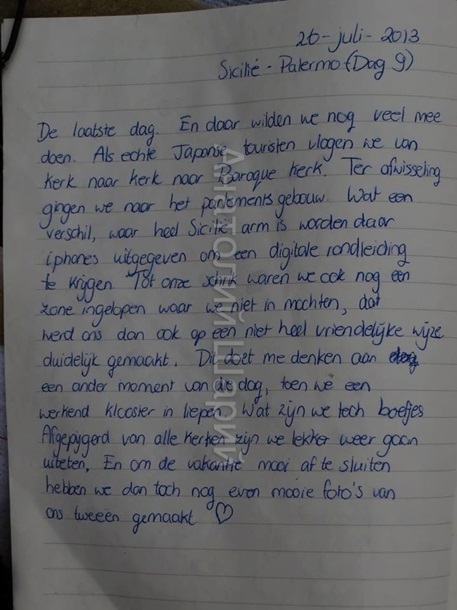 26-juli-2013
Sicilië - Palermo (Dag 9)
De laatste dag. En daar wilden we nog veel mee
doen. Als echte Japanse touristen vlogen we van
kerk naar kerk naar Baroque kerk. Ter afwisseling
gingen we naar het parlementsgebouw. Wat een
verschil, waar heel Sicilië arm is worden daar
iphones uitgegeven om een digitale rondleiding
te krijgen. Tot onze schrik waren we ook nog een
zone ingelopen waar we niet in mochten, dat
werd ons dan ook op een niet heel vriendelijke wijze
duidelijk gemaakt. Dit doet me denken aan
een ander moment van die dag, toen we een
werkend klooster in liepen. Wat zijn we toch boefjes
Afgepijgerd van alle kerken zijn we lekker weer gaan
uiteten. En om de vakantie mooi af te sluiten
hebben we dan toch nog even mooie foto's van
ons tweeën gemaakt ♡
Анатолий Шарий